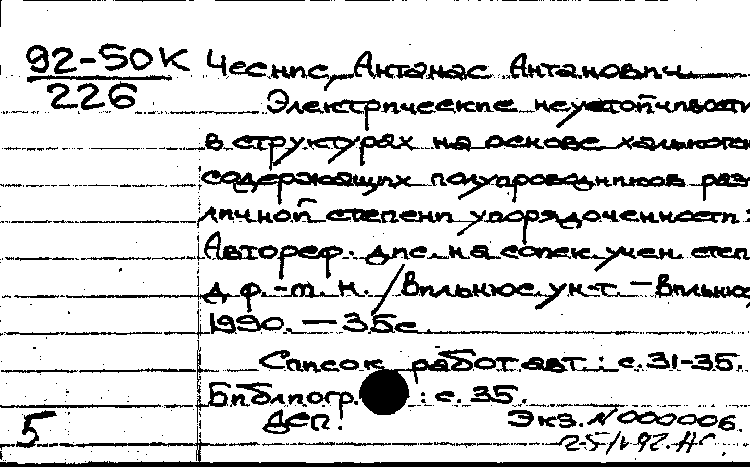 92-50К Чеснис, Антанас Антанович.
226 Электрические неустойчивости
в структурах на основе халькоген
содержащих полупроводников раз
личной степени упорядоченности:
Автореф. дис. на соиск. учен. степ.
д.ф.-м.н. / Вильнюс. ун-т. — Вильнюс
1990. — 35с.
Список работ авт.: с. 31-35.
Библиогр.: с. 35.
5 ДСП. Экз. N 000006.